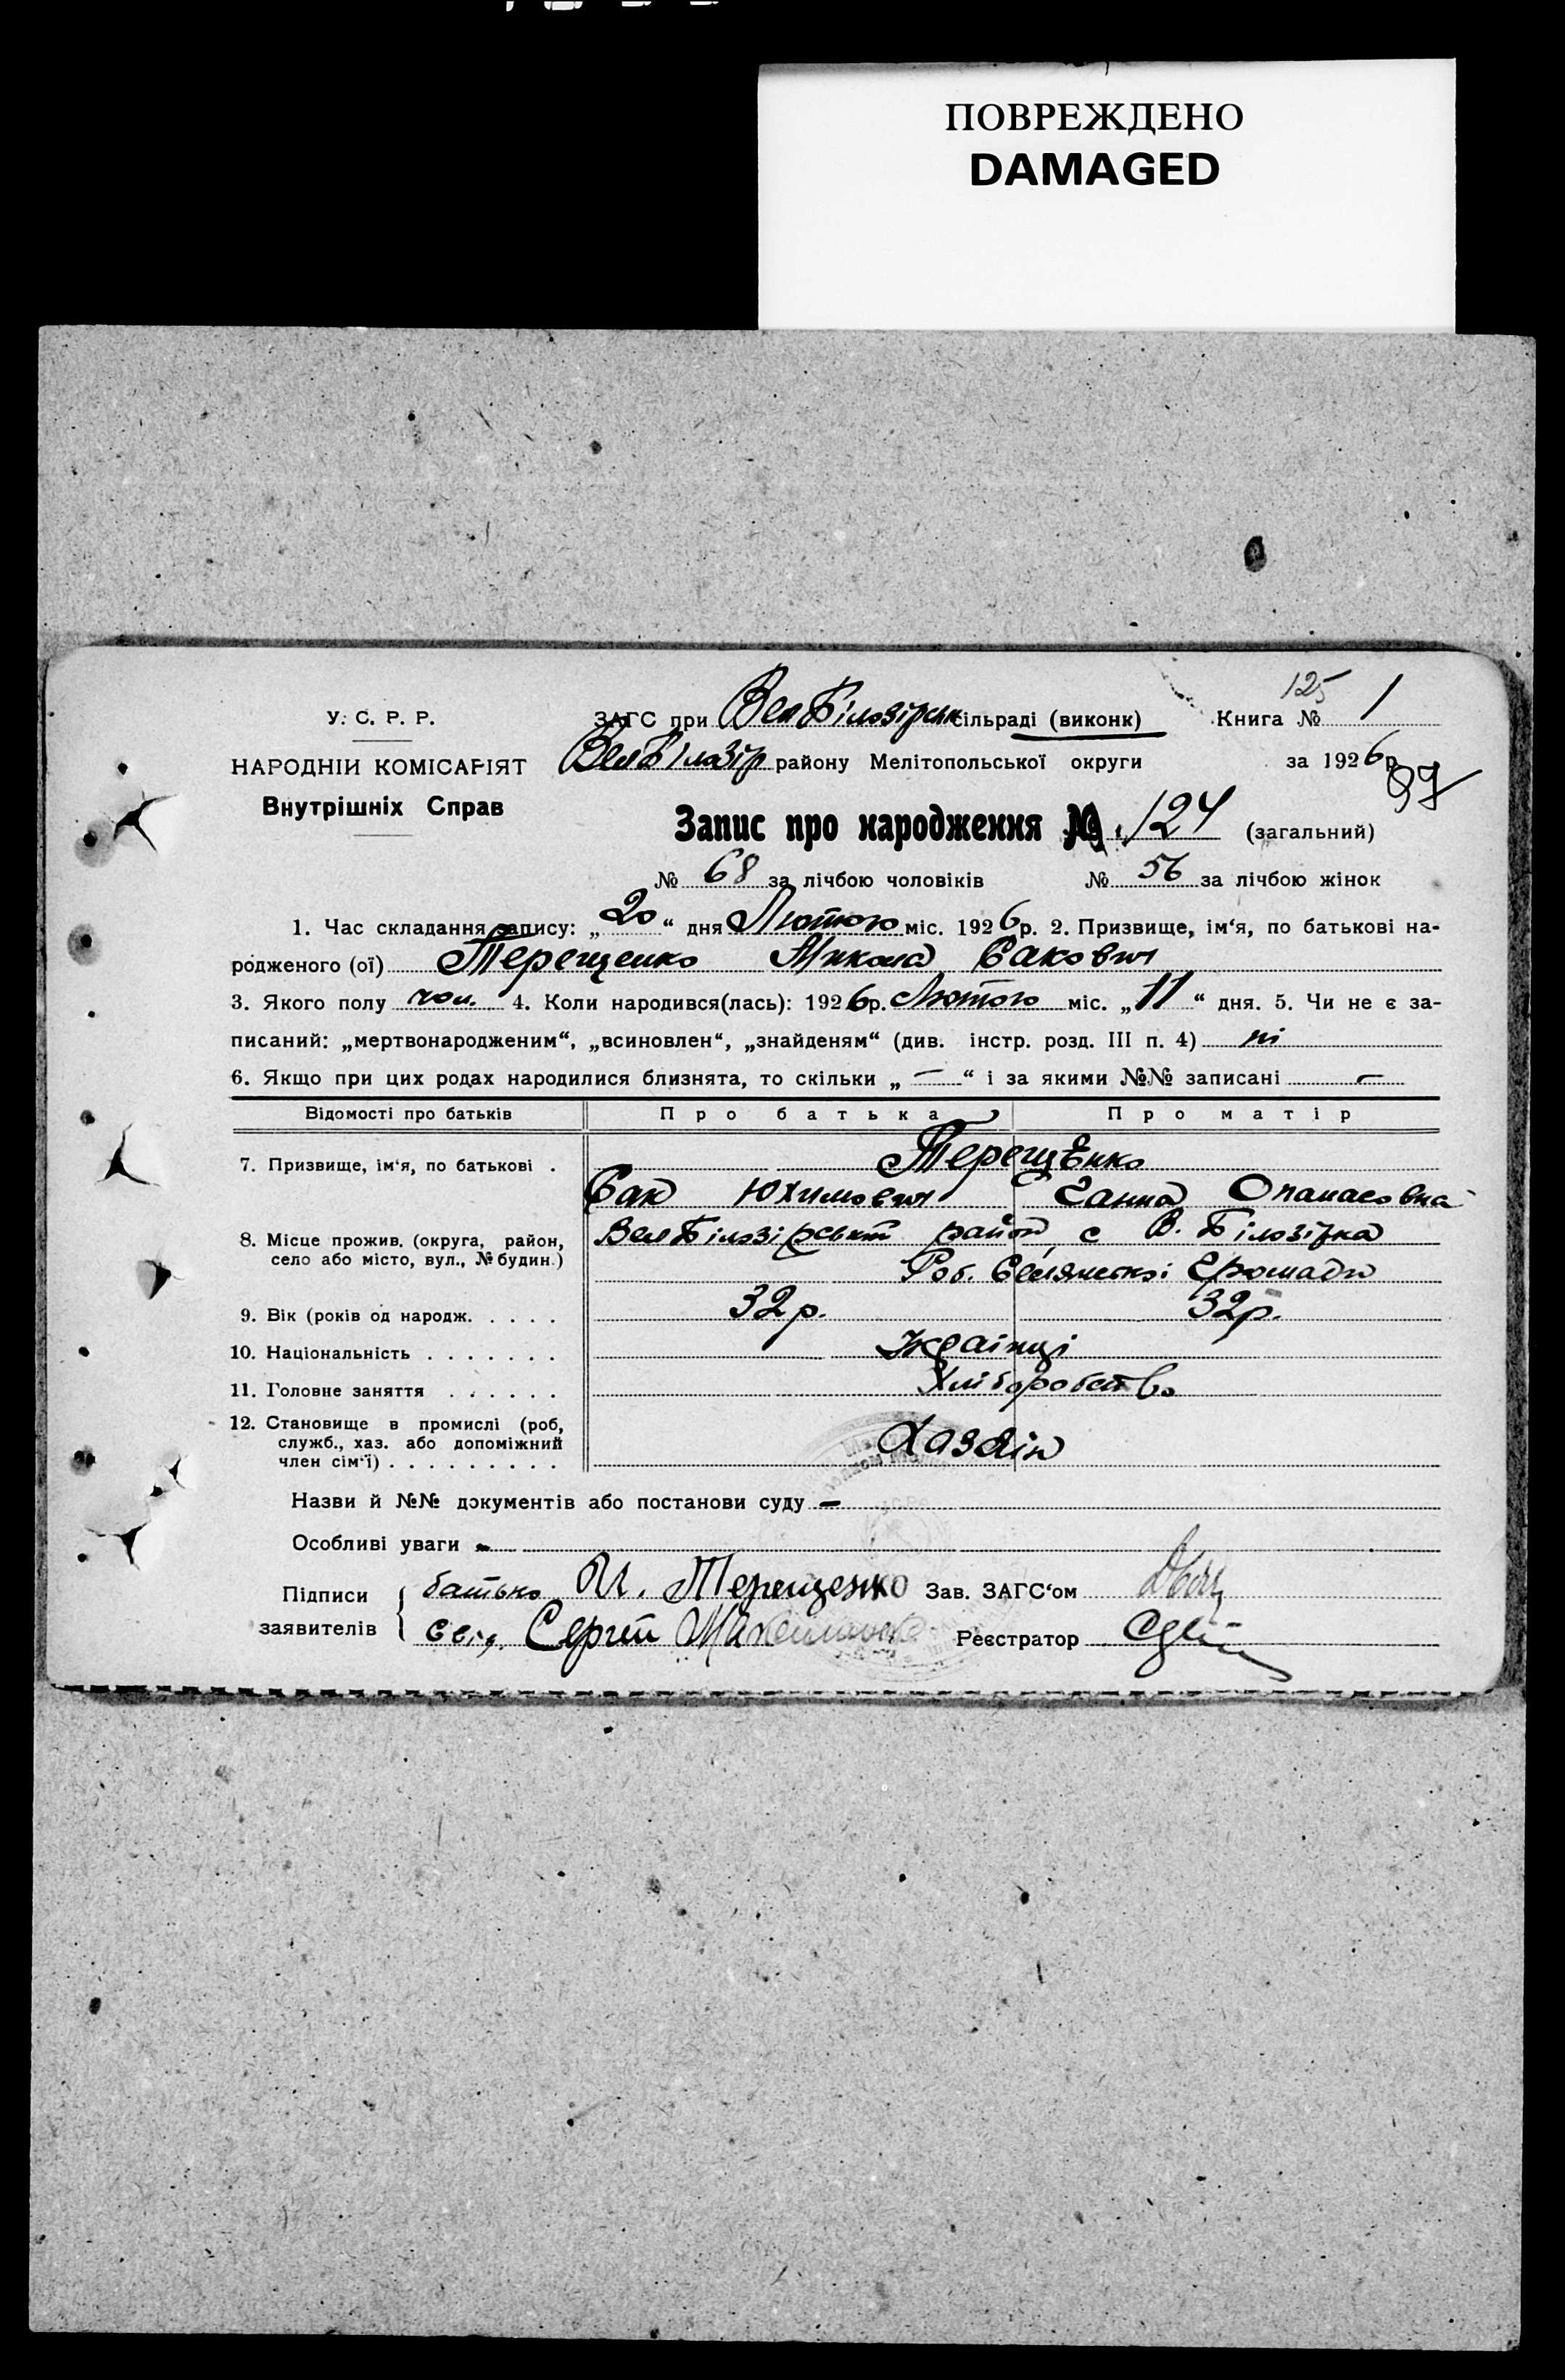 ПОВРЕЖДЕНО
DAMAGED
125
У. С. Р. Р.
ЗАГС при Вел Білозірськ сільраді (виконк) Книга № 1
НАРОДНІЙ КОМІСАРІЯТ
Вел Білозір району Мелітопольської округи за 1926 р.
97
Внутрішніх Справ
Запис про народження № 124 (загальний)
№ 68 за лічбою чоловіків № 56 за лічбою жінок
1. Час складання запису: „20“ дня Лютого міс. 1926 р. 2. Призвище, ім‘я, по батькові на-
родженого (ої) Терещенко Микола Сакович
3. Якого полу чол. 4. Коли народився(лась): 1926 р. Лютого міс. „11“ дня. 5. Чи не є за-
писаний: „мертвонародженим“, „всиновлен“, „знайденям“ (див. інстр. розд. III п. 4) ні
6. Якщо при цих родах народилися близнята, то скільки „—“ і за якими №№ записані —
Відомості про батьків Про батька Про матір
7. Призвище, ім‘я, по батькові . Терещенко
Сак Юхимович Ганна Опанасовна
8. Місце прожив. (округа, район, село або місто, вул., № будин.) Вел Білозірський район с В. Білозірка
Роб. Селянської Громади
9. Вік (років од народж. . . . . 32 р. 32 р.
10. Національність . . . . . . . Українці
11. Головне заняття . . . . . . Хліборобство
12. Становище в промислі (роб, служб., хаз. або допоміжний член сім‘ї) . . . . . . . . . Хазяїн
Назви й №№ документів або постанови суду —
Особливі уваги -
Підписи заявителів { батько Терещенко Зав. ЗАГС‘ом
свід. Сергій Реєстратор